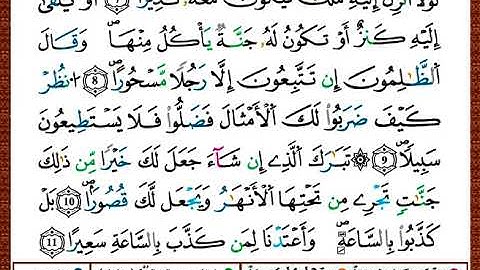 لَوْلَآ أُنزِلَ إِلَيْهِ مَلَكٌ فَيَكُونَ مَعَهُۥ نَذِيرًا 7 أَوْ يُلْقَىٰٓ
إِلَيْهِ كَنزٌ أَوْ تَكُونُ لَهُۥ جَنَّةٌ يَأْكُلُ مِنْهَا ۚ وَقَالَ
ٱلظَّٰلِمُونَ إِن تَتَّبِعُونَ إِلَّا رَجُلًا مَّسْحُورًا 8 ٱنظُرْ
كَيْفَ ضَرَبُوا۟ لَكَ ٱلْأَمْثَالَ فَضَلُّوا۟ فَلَا يَسْتَطِيعُونَ
سَبِيلًا 9 ۞ تَبَارَكَ ٱلَّذِىٓ إِن شَآءَ جَعَلَ لَكَ خَيْرًا مِّن ذَٰلِكَ
جَنَّٰتٍ تَجْرِى مِن تَحْتِهَا ٱلْأَنْهَٰرُ وَيَجْعَل لَّكَ قُصُورًۢا 10 بَلْ
كَذَّبُوا۟ بِٱلسَّاعَةِ ۖ وَأَعْتَدْنَا لِمَن كَذَّبَ بِٱلسَّاعَةِ سَعِيرًا 11